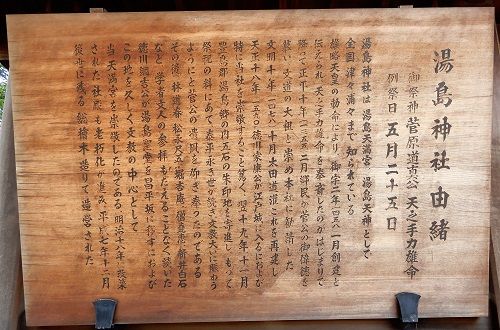 湯島神社由緒
御祭神 菅原道真公 天之手力雄命
例祭日 五月二十五日
湯島神社は 湯島天満宮 湯島天神として
全国津々浦々まで知られている
雄略天皇の勅命により 御宇二年(四五八)一月創建と
伝えられ 天之手力雄命を奉斎したのがはじまりで
降って正平十年(一三五五)二月郷民が菅公の御偉徳を
慕い 文道の大祖と崇め本社に勧請した
文明十年(一四七八)十月 太田道灌これを再建し
天正十八年(一五九〇)徳川家康公が江戸城に入るにおよび
特に当社を崇敬すること篤く 翌十九年十一月
豊島郡湯島郷の内 五石の朱印地を寄進し もって
祭祀の料にあて 泰平永き世が続き 文教大いに賑わう
ようにと 菅公の遺風を仰ぎ奉ったのである
その後 林道春 松永尺五 堀杏庵 僧堯恵 新井白石
など 学者文人の参拝もたえることなく続いた
徳川綱吉公が湯島聖堂を昌平坂に移すにおよび
この地を久しく文教の中心として
当天満宮を崇敬したのである 明治十八年に改築
された社殿も老朽化が進み 平成七年十二月
後世に残る総檜木造りで造営された